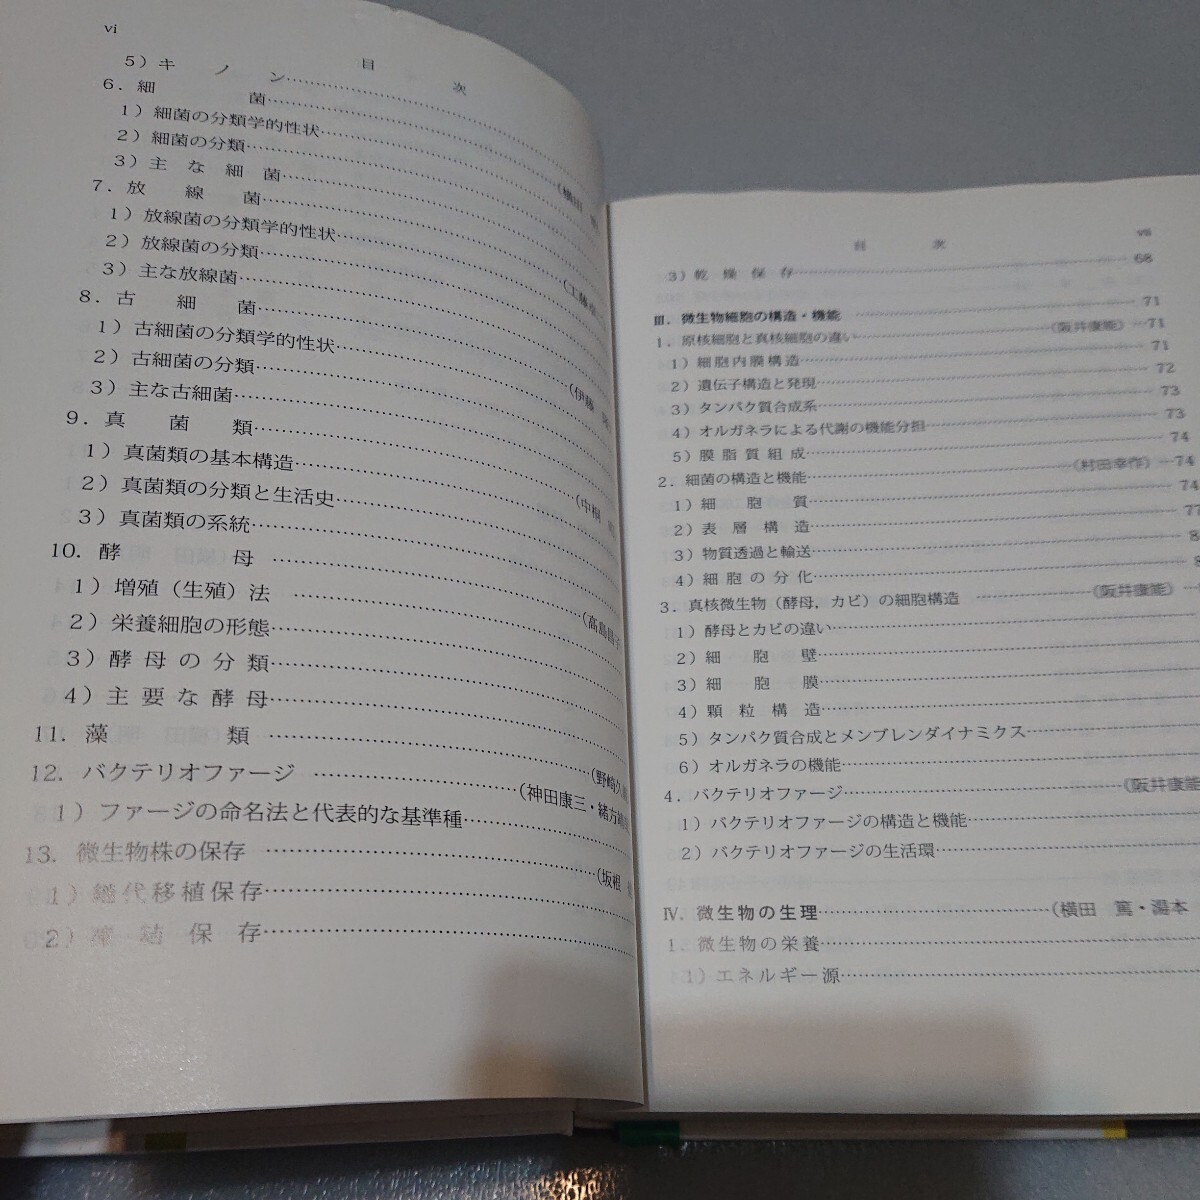 vi
目次
5）キノン
6．細菌
1）細菌の分類学的性状
2）細菌の分類
3）主な細菌
7．放線菌
1）放線菌の分類学的性状
2）放線菌の分類
3）主な放線菌
8．古細菌
1）古細菌の分類学的性状
2）古細菌の分類
3）主な古細菌
9．真菌類
1）真菌類の基本構造
2）真菌類の分類と生活史
3）真菌類の系統
10．酵母
1）増殖（生殖）法
2）栄養細胞の形態
3）酵母の分類
4）主要な酵母
11．藻類
12．バクテリオファージ（神田康三・緒方
1）ファージの命名法と代表的な基準種
13．微生物株の保存（坂根
1）継代移植保存
2）凍結保存
目次
vii
3）乾燥保存 68
Ⅲ．微生物細胞の構造・機能 71
1．原核細胞と真核細胞の違い（阪井康能）71
1）細胞内膜構造 71
2）遺伝子構造と発現 72
3）タンパク質合成系 73
4）オルガネラによる代謝の機能分担 73
5）膜脂質組成 74
2．細菌の構造と機能（村田幸作）74
1）細胞質 74
2）表層構造 77
3）物質透過と輸送 8
4）細胞の分化 8
3．真核微生物（酵母，カビ）の細胞構造（阪井康能）
1）酵母とカビの違い
2）細胞壁
3）細胞膜
4）顆粒構造
5）タンパク質合成とメンブレンダイナミクス
6）オルガネラの機能
4．バクテリオファージ（阪井康能
1）バクテリオファージの構造と機能
2）バクテリオファージの生活環
Ⅳ．微生物の生理（横田　篤・湯本
1．微生物の栄養
1）エネルギー源